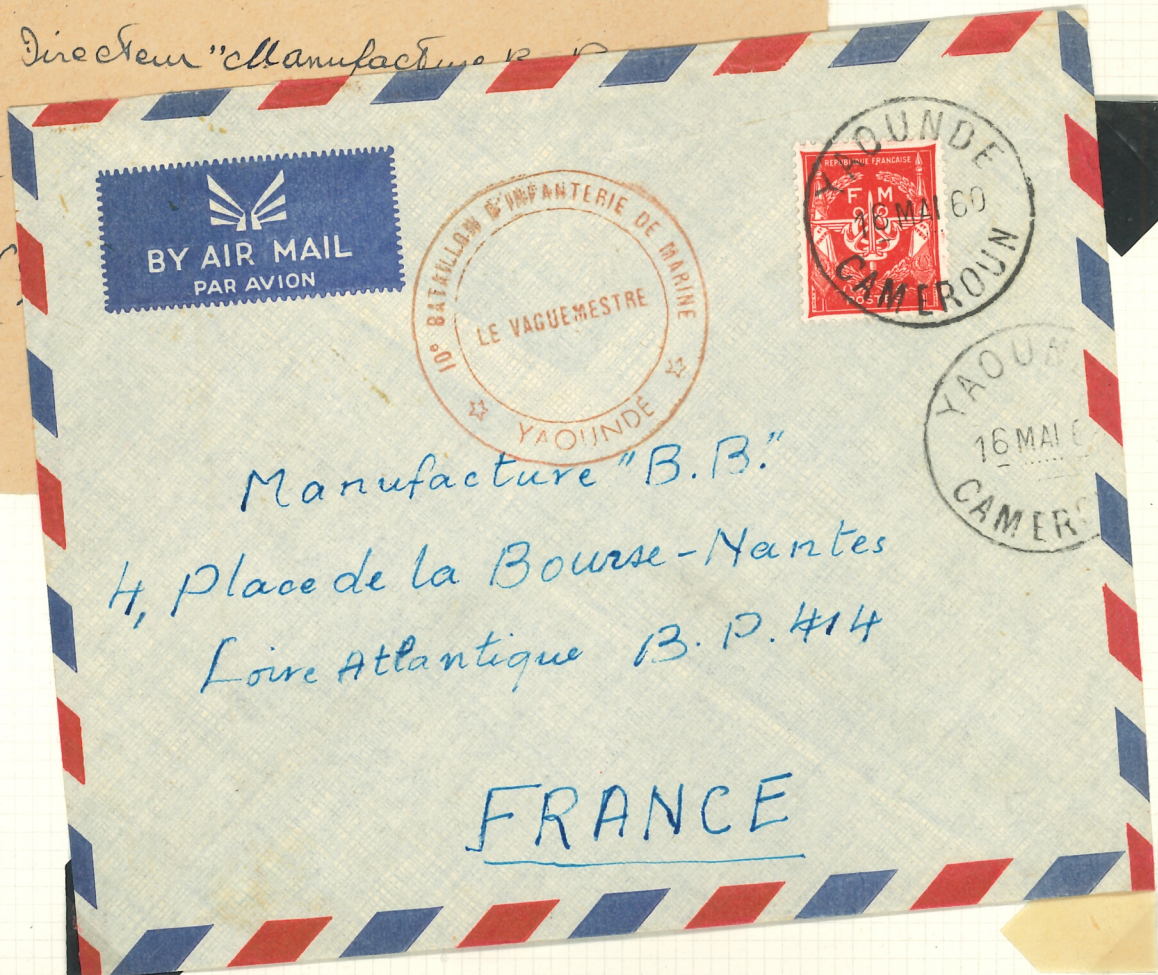 Directeur "Manufacture B. B
BY AIR MAIL
PAR AVION
10e BATAILLON D'INFANTERIE DE MARINE
LE VAGUEMESTRE
YAOUNDÉ
REPUBLIQUE FRANÇAISE
F M
POSTES
YAOUNDE
16 MAI 60
CAMEROUN
YAOUN
16 MAI 6
CAMERO
Manufacture "B.B."
4, Place de la Bourse-Nantes
Loire Atlantique B.P. 414
FRANCE